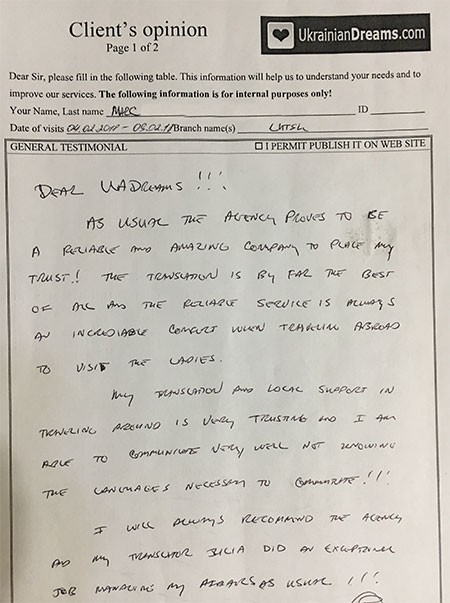 Client's opinion
Page 1 of 2
UkrainianDreams.com
Dear Sir, please fill in the following table. This information will help us to understand your needs and to
improve our services. The following information is for internal purposes only!
Your Name, Last name MARC ID
Date of visits 04.02.2017 - 08.02.17 Branch name(s) LUTSK
GENERAL TESTIMONIAL ☐ I PERMIT PUBLISH IT ON WEB SITE
DEAR UADREAMS !!!
AS USUAL THE AGENCY PROVES TO BE
A RELIABLE AND AMAZING COMPANY TO PLACE MY
TRUST! THE TRANSLATION IS BY FAR THE BEST
OF ALL AND THE RELIABLE SERVICE IS ALWAYS
AN INCREDIABLE COMFORT WHEN TRAVELING ABROAD
TO VISIT THE LADIES.
MY TRANSLATION AND LOCAL SUPPORT IN
TRAVELING AROUND IS VERY TRUSTING AND I AM
ABLE TO COMMUNICATE VERY WELL NOT KNOWING
THE LANGUAGES NECESSARY TO COMMUNICATE!!!
I WILL ALWAYS RECOMMEND THE AGENCY
AND MY TRANSLATOR JULIA DID AN EXCEPTIONAL
JOB MANAGING MY AFFAIRS AS USUAL !!!